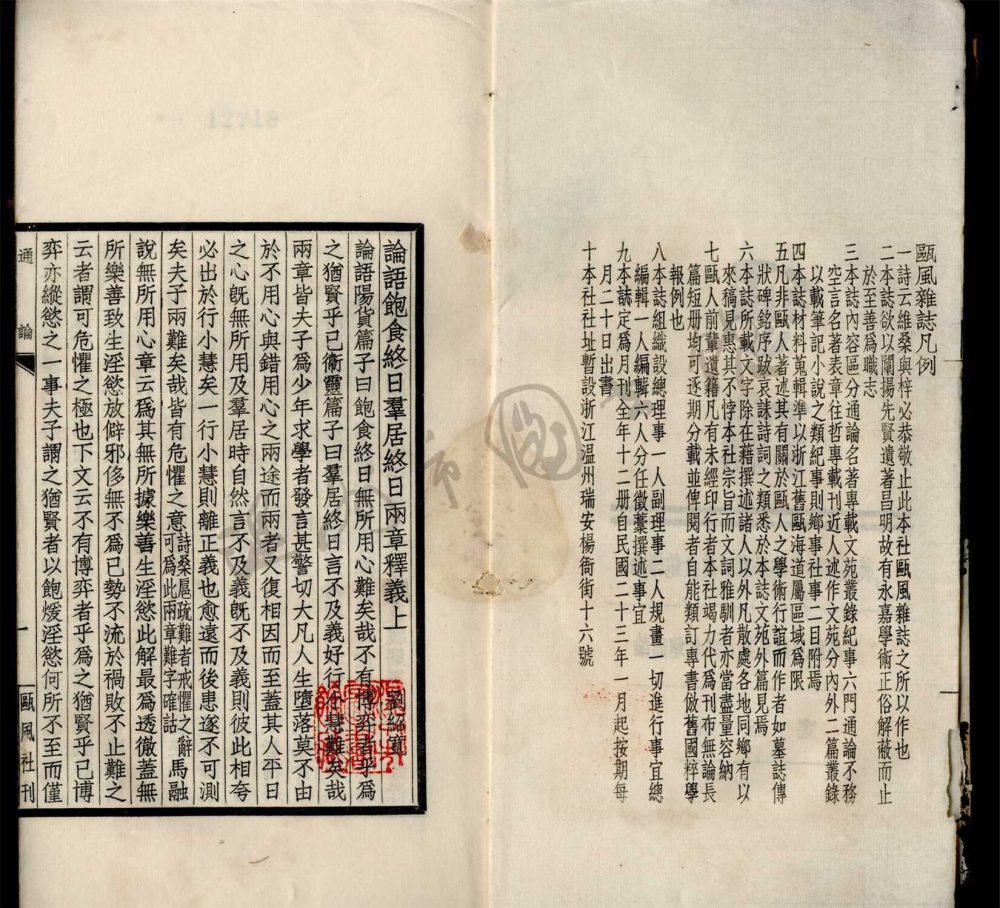 甌風雜誌凡例
一詩云維桑與梓必恭敬止此本社甌風雜誌之所以作也
二本誌欲以闡揚先賢遺著昌明故有永嘉學術正俗解蔽而止
於至善為職志
三本誌內容區分通論名著專載文苑叢錄紀事六門通論不務
空言名著表章往哲專載刊近人述作文苑分內外二篇叢錄
以載筆記小說之類紀事則鄉事社事二目附焉
四本誌材料蒐輯準以浙江舊甌海道屬區域為限
五凡非甌人著述其有關於甌人之學術行誼而作者如墓誌傳
狀碑銘序跋哀誄詩詞之類悉於本誌文苑外篇見焉
六本誌所載文字除在藉撰述諸人以外凡散處各地同鄉有以
來稿見惠其不悖本社宗旨而文詞雅馴者亦當盡量容納
七甌人前輩遺籍凡有未經印行者本社竭力代為刊布無論長
篇短册均可逐期分載並俾閱者自能類訂專書倣舊國粹學
報例也
八本誌組織設總理事一人副理事二人規畫一切進行事宜總
編輯一人編輯六人分任徵藁撰述事宜
九本誌定為月刊全年十二册自民國二十三年一月起按期每
月二十日出書
十本社社址暫設浙江温州瑞安楊衙街十六號
論語飽食終日羣居終日兩章釋義上
劉紹寬
論語陽貨篇子曰飽食終日無所用心難矣哉不有博弈者乎為
之猶賢乎已衞靈篇子曰羣居終日言不及義好行小慧難矣哉
兩章皆夫子為少年求學者發言甚警切大凡人生墮落莫不由
於不用心與錯用心之兩途而兩者又復相因而至蓋其人平日
之心旣無所用及羣居時自然言不及義旣不及義則彼此相夸
必出於行小慧矣一行小慧則離正義也愈遠而後患遂不可測
矣夫子兩難矣哉皆有危懼之意詩桑扈疏難者戒懼之辭可為此兩章難字確詁馬融
說無所用心章云為其無所據樂善生淫慾此解最為透徹蓋無
所樂善致生淫慾放僻邪侈無不為已勢不流於禍敗不止難之
云者謂可危懼之極也下文云不有博弈者乎為之猶賢乎已博
弈亦縱慾之一事夫子謂之猶賢者以飽煖淫慾何所不至而僅
通論
一
甌風社刊